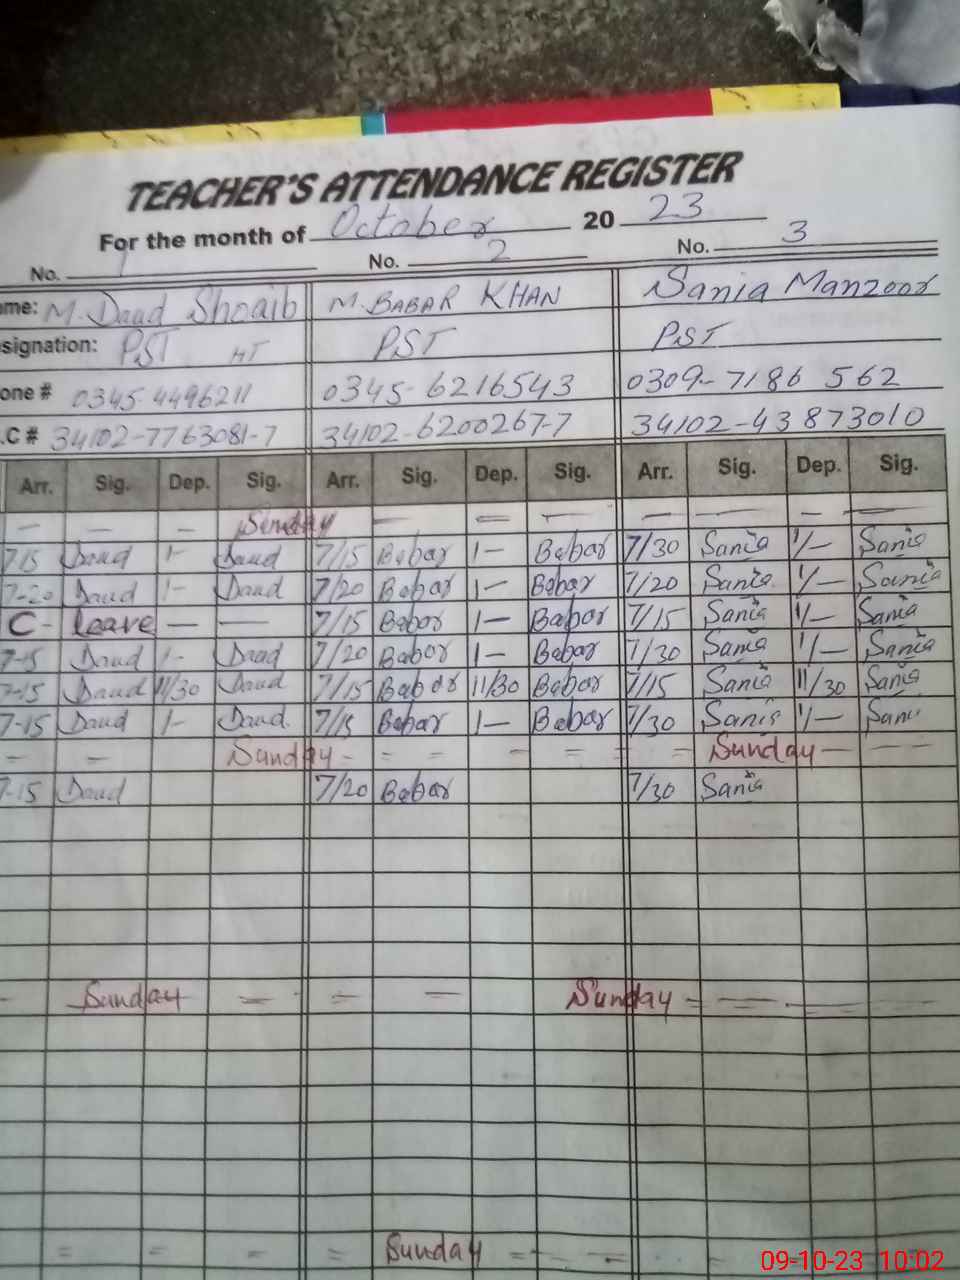 TEACHER'S ATTENDANCE REGISTER
For the month of October 20 23
No. 1 No. 2 No. 3
ame: M. Daud Shoaib M. BABAR KHAN Sania Manzoor
signation: PST HT PST PST
one # 0345-4496211 0345-6216543 0309-7186 562
.C # 34102-7763081-7 34102-6200267-7 34102-43873010
Arr. Sig. Dep. Sig. Arr. Sig. Dep. Sig. Arr. Sig. Dep. Sig.
— — — Sunday — — — — — — —
7-15 Daud 1- Daud 7/15 Babar 1— Babar 7/30 Sania 1/— Sania
7-20 Daud 1- Daud 7/20 Babar 1— Babar 7/20 Sania 1/— Sania
C - leave — — 7/15 Babar 1— Babar 7/15 Sania 1/— Sania
7-15 Daud 1- Daud 7/20 Babar 1— Babar 7/30 Sania 1/— Sania
7-15 Daud 11/30 Daud 7/15 Babar 11/30 Babar 7/15 Sania 11/30 Sania
7-15 Daud 1- Daud. 7/15 Babar 1— Babar 7/30 Sania 1/— Sania
– – Sunday - = = - = - Sunday — - -
7-15 Daud 7/20 Babar 7/30 Sania
- Sunday = = = Sunday = = - - -
= = = = Sunday = - - - -
09-10-23 10:02